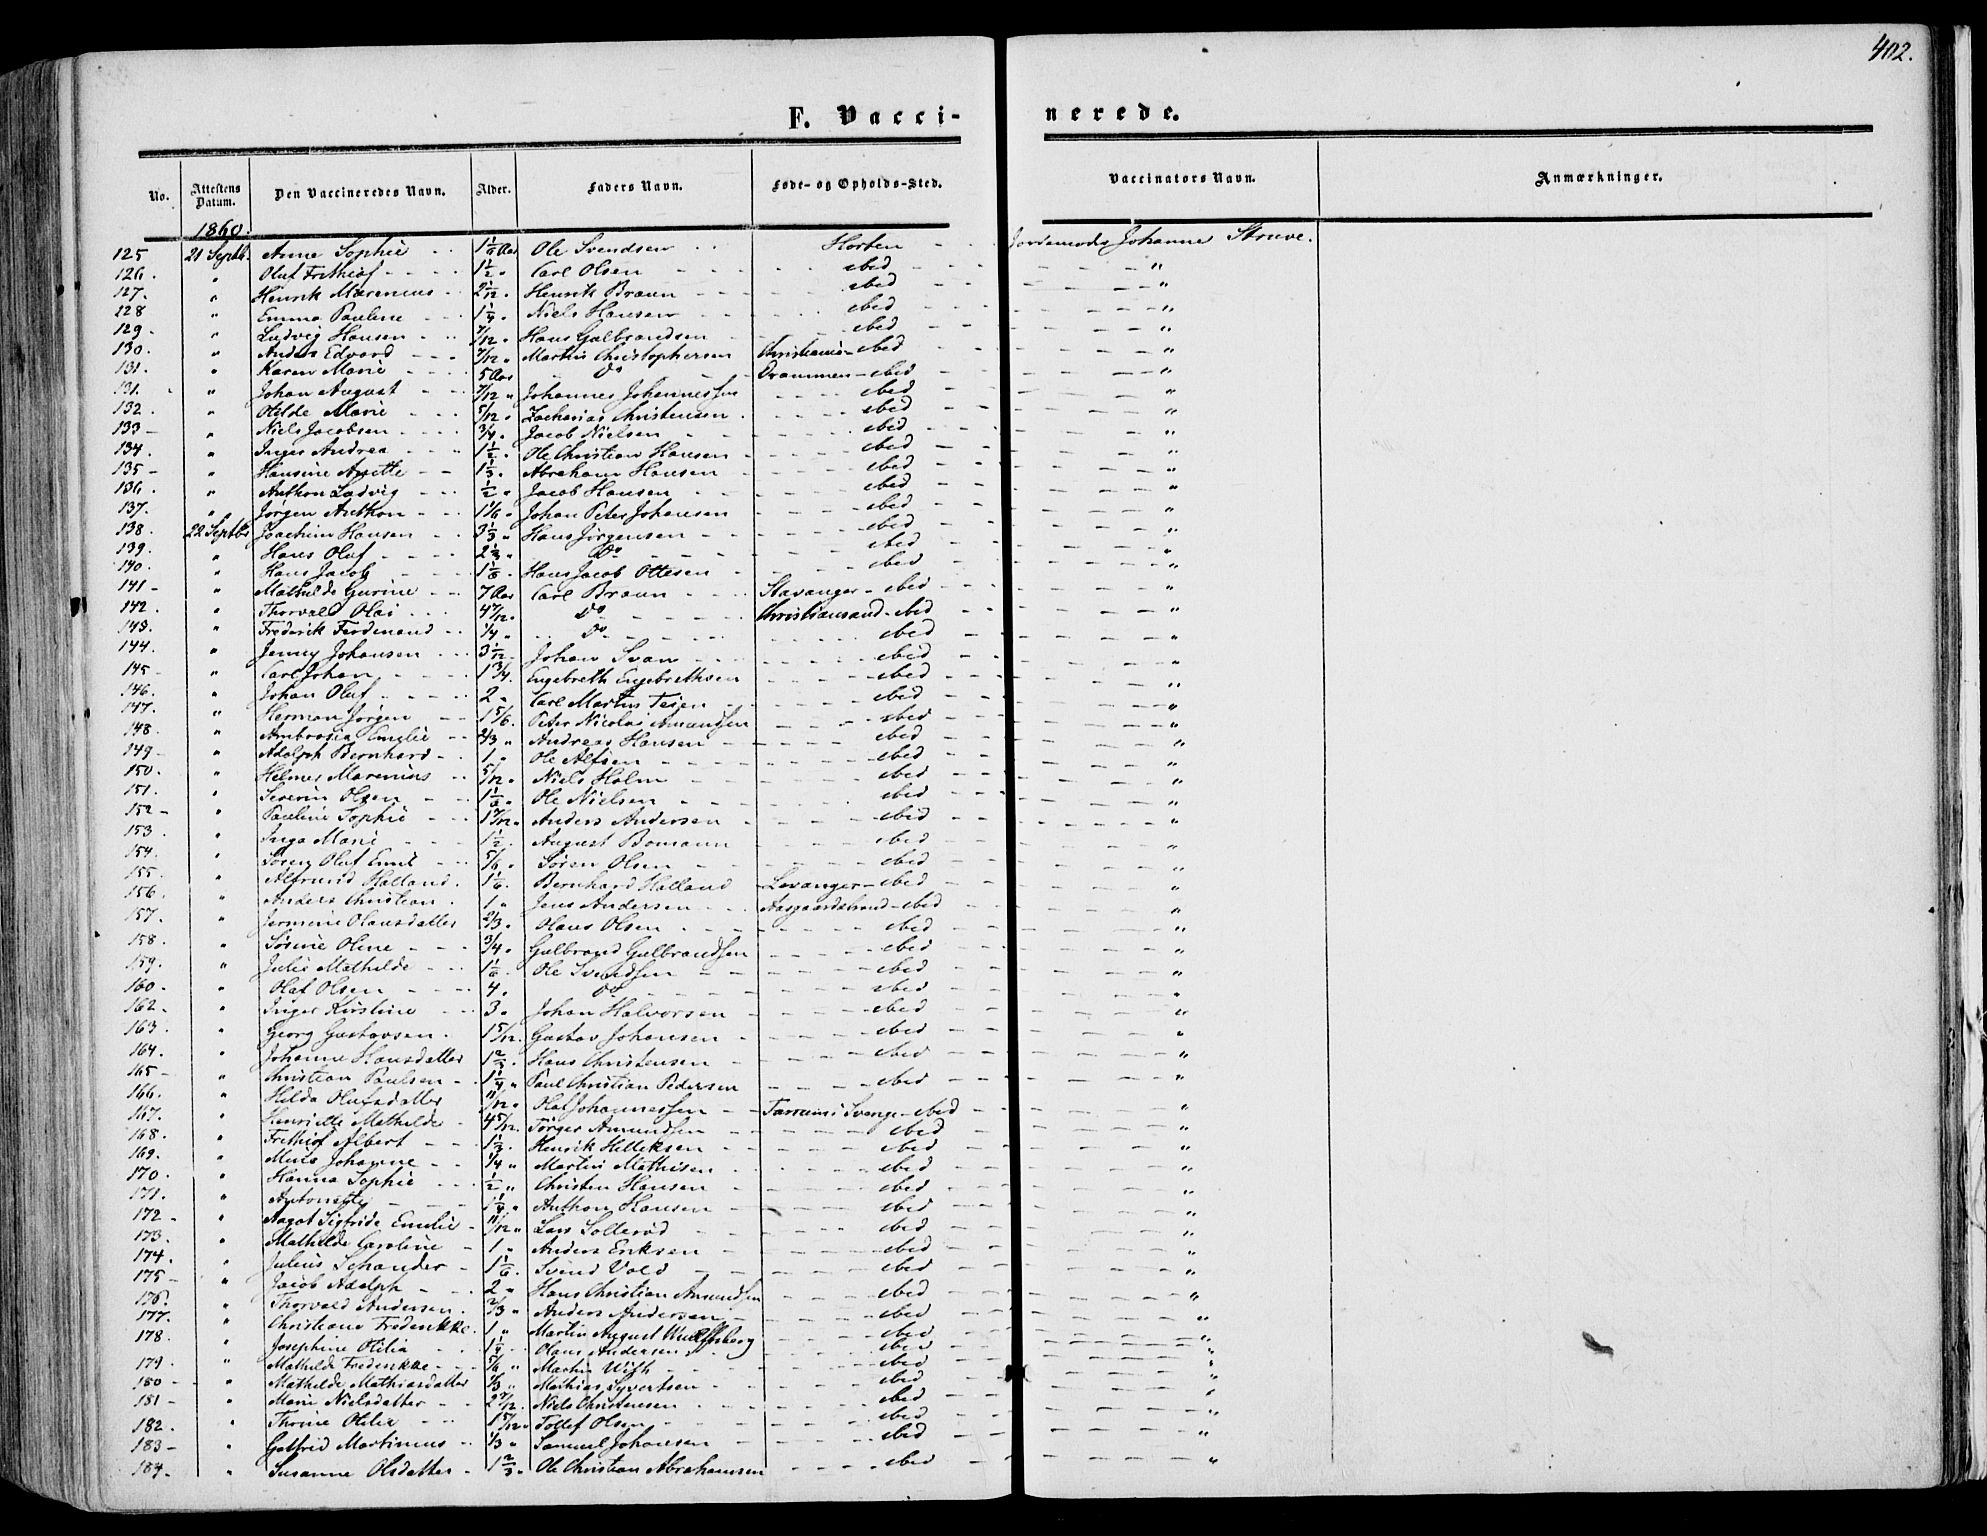 402.
F. Vacci- nerede.
No. Attestens Datum. Den Vaccineredes Navn. Alder. Faders Navn. Føde- og Opholds-Sted. Vaccinators Navn. Anmærkninger.
1860.
125 21 Septb. Anne Sophie 1 1/6 Aar Ole Svendsen Horten Jordemoder Johanne Struve.
126. " Oluf Frithiof 1 1/2 " Carl Olsen ibid "
127. " Henrik Marenius 2 1/12 " Henrik Braun ibid "
128 " Emma Pauline 1 1/4 " Niels Hansen ibid "
129. " Ludvig Hansen 7/12 " Hans Gulbrandsen ibid "
130. " Anders Edvard 7/12 " Martin Christophersen Christiania - ibid "
131. " Karen Marie 5 Aar Do Drammen - ibid "
131. " Johan August 7/12 " Johannes Johannessen ibid "
132. " Hilde Marie 5/12 " Zacharias Christensen ibid "
133 - " Niels Jacobsen 3/4 " Jacob Nielsen ibid "
134. " Inger Andrea 1 1/2 " Ole Christian Hansen ibid "
135 - " Hansine Anette 1 1/3 " Abraham Hansen ibid "
136. " Anthon Ludvig 1/2 " Jacob Hansen ibid "
137. " Jørgen Anthon 1 1/6 " Johan Peter Johansen ibid "
138. 22 Septbr Joachim Hansen 3 1/3 " Hans Jørgensen ibid "
139. " Hans Oluf 2 1/3 " Do ibid "
140. " Hans Jacob 1 1/6 " Hans Jacob Ottesen ibid "
141 - " Mathilde Gurine 7 Aar Carl Braun Stavanger - ibid "
142. " Thorvald Olai 4 7/12 " Do Christiansand - ibid "
143. " Frederik Ferdinand 1/4 " Do ibid "
144. " Jenny Johansen 3 1/12 Johan Svan ibid "
145 - " Carl Johan 1 3/4 " Engebreth Engebrethsen ibid "
146. " Johan Oluf 2 " Carl Martin Teien ibid "
147. " Herman Jørgen 1 5/6 " Peter Nicolai Amundsen ibid "
148. " Ambrosia Emilie 2/3 " Andreas Hansen ibid "
149 - " Adolph Bernhard 1 " Ole Alfsen ibid "
150. " Helmer Marenius 5/12 " Niels Holm ibid "
151. " Severin Olsen 1 1/6 " Ole Nielsen ibid "
152 - " Pauline Sophie 1 7/12 " Anders Andersen ibid "
153. " Inga Marie 1 1/2 " August Bomann ibid "
154. " Søren Oluf Emil 5/6 " Søren Olsen ibid "
155. " Halland 1 1/6 " Bernhard Halland Levanger - ibid "
156. " Anders Christian 1 " Jens Andersen Aasgaardstrand - ibid "
157. " Jermine Olausdatter 2/3 " Olaus Olsen ibid "
158. " Sørine Oline 3/4 " Gulbrand Gulbrandsen ibid "
159. " Julie Mathilde 1 1/6 " Ole Svendsen ibid "
160. " Olaf Olsen 4 " Do ibid "
162. " Inger Kirstine 3 " Johan Halvorsen ibid "
163. " Georg Gustavsen 1 5/12 " Gustav Johansen ibid "
164. " Johanne Hansdatter 1 2/3 " Hans Christensen ibid "
165 - " Christian Paulsen 1 1/4 " Paul Christian Pedersen ibid "
166. " Hilda Olafsdatter 11/12 " Olaf Johannessen ibid "
167. " Henriette Mathilde 4 5/12 " Tørger Amundsen ibid "
168. " Frithiof Albert 1 1/2 " Henrik Helleksen ibid "
169. " Johanne 1/4 " Martin Mathisen ibid "
170. " Hanna Sophie 1/2 " Christen Hansen ibid "
171. " Antonette 1 1/4 " Anthon Hansen ibid "
172 - " Aagot Sigfrida Emilie 11/12 " Lars Sollerød ibid "
173. " Mathilde Caroline 1 " Anders Eriksen ibid "
174. " Julius Schander 1 1/6 " Svend Vold ibid "
175 - " Jacob Adolph 2 " Hans Christian Amundsen ibid "
176. " Thorvald Andersen 2/3 " Anders Andersen ibid "
177. " Christiane Frederikke 1 " Martin August Wulfsberg ibid "
178. " Josephine Otilia 1 1/4 " Olaus Andersen ibid "
179. " Mathilde Frederikke 5/6 " Martin Wigh ibid "
180 - " Mathilde Mathiasdatter 1/3 " Mathias Syvertsen ibid "
181 - " Marie Nielsdatter 2 7/12 " Niels Christensen ibid "
182. " Thrine Otilie 1 5/12 " Tollef Olsen ibid "
183 - " Gotfred Martinius 1/3 " Samuel Johansen ibid "
184. " Susanne Olsdatter 1 2/3 " Ole Christian Abrahamsen ibid "